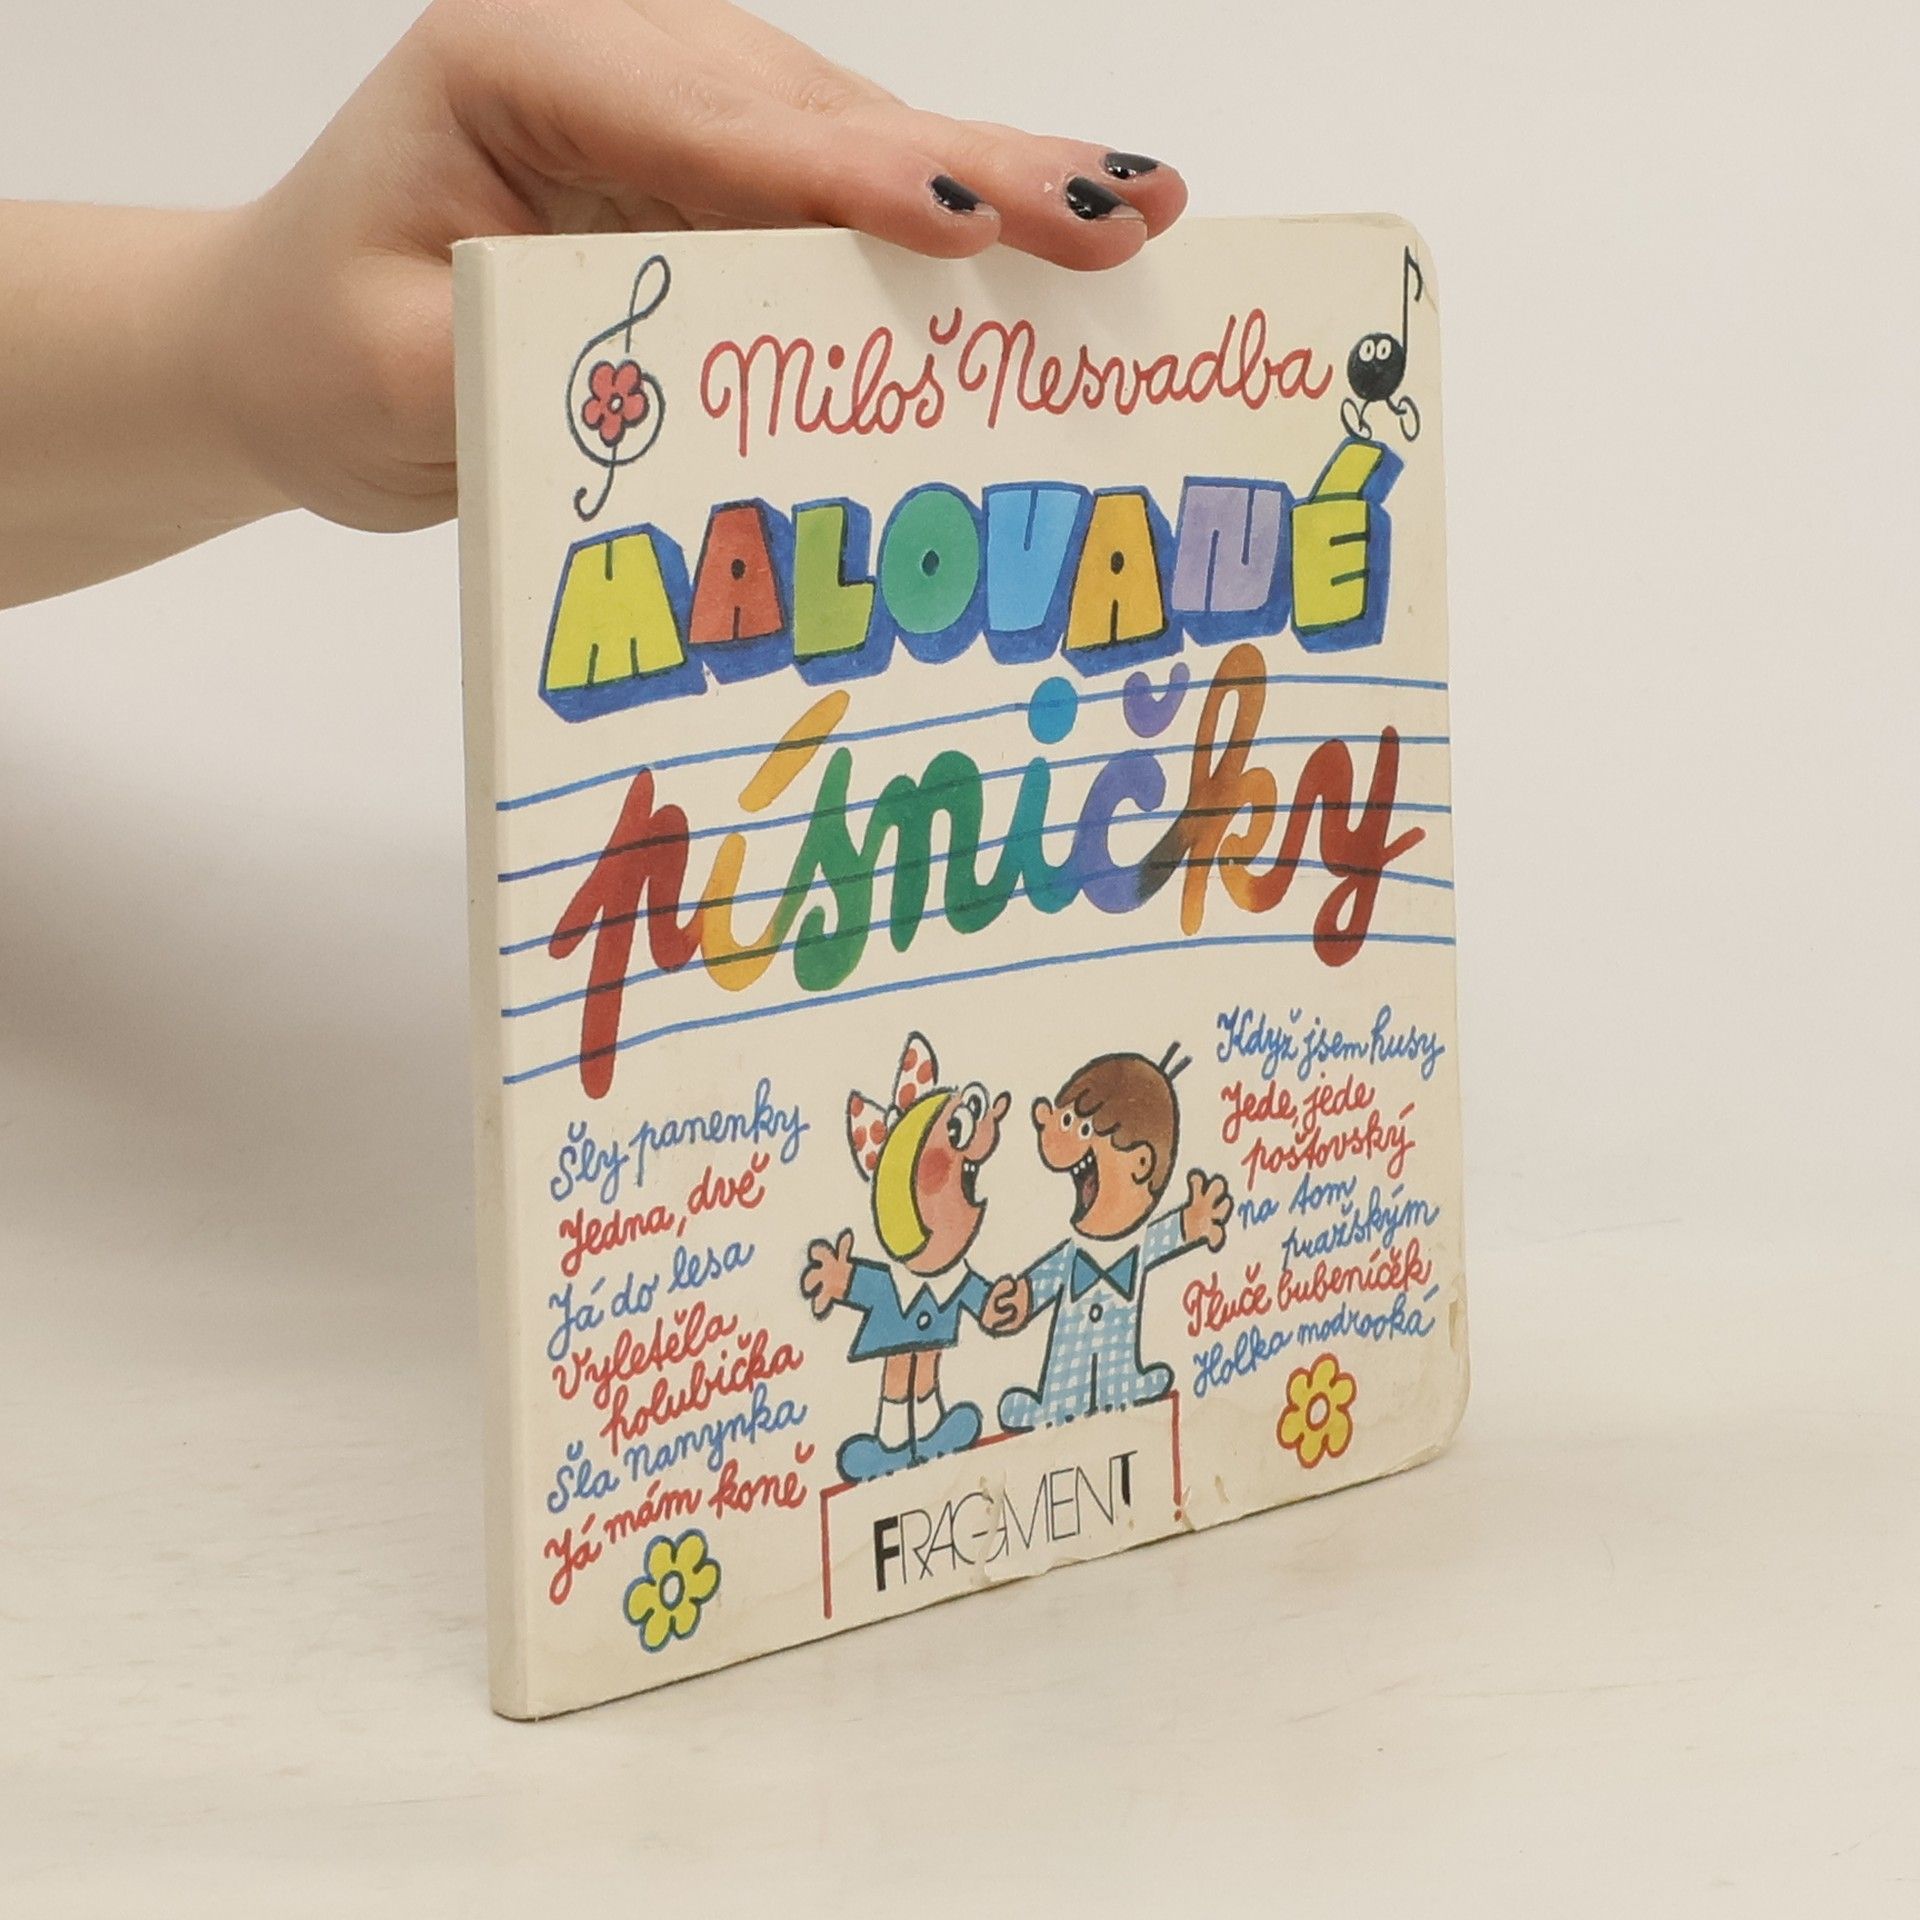 Miloš Nesvadba
MALOVANÉ
písničky
Šly panenky
Jedna, dvě
Já do lesa
Vyletěla
holubička
Šla Nanynka
Já mám koně
Když jsem husy
Jede, jede
poštovský
na tom
pražským
Tluče bubeníček
Holka modrooká
FRAGMENT